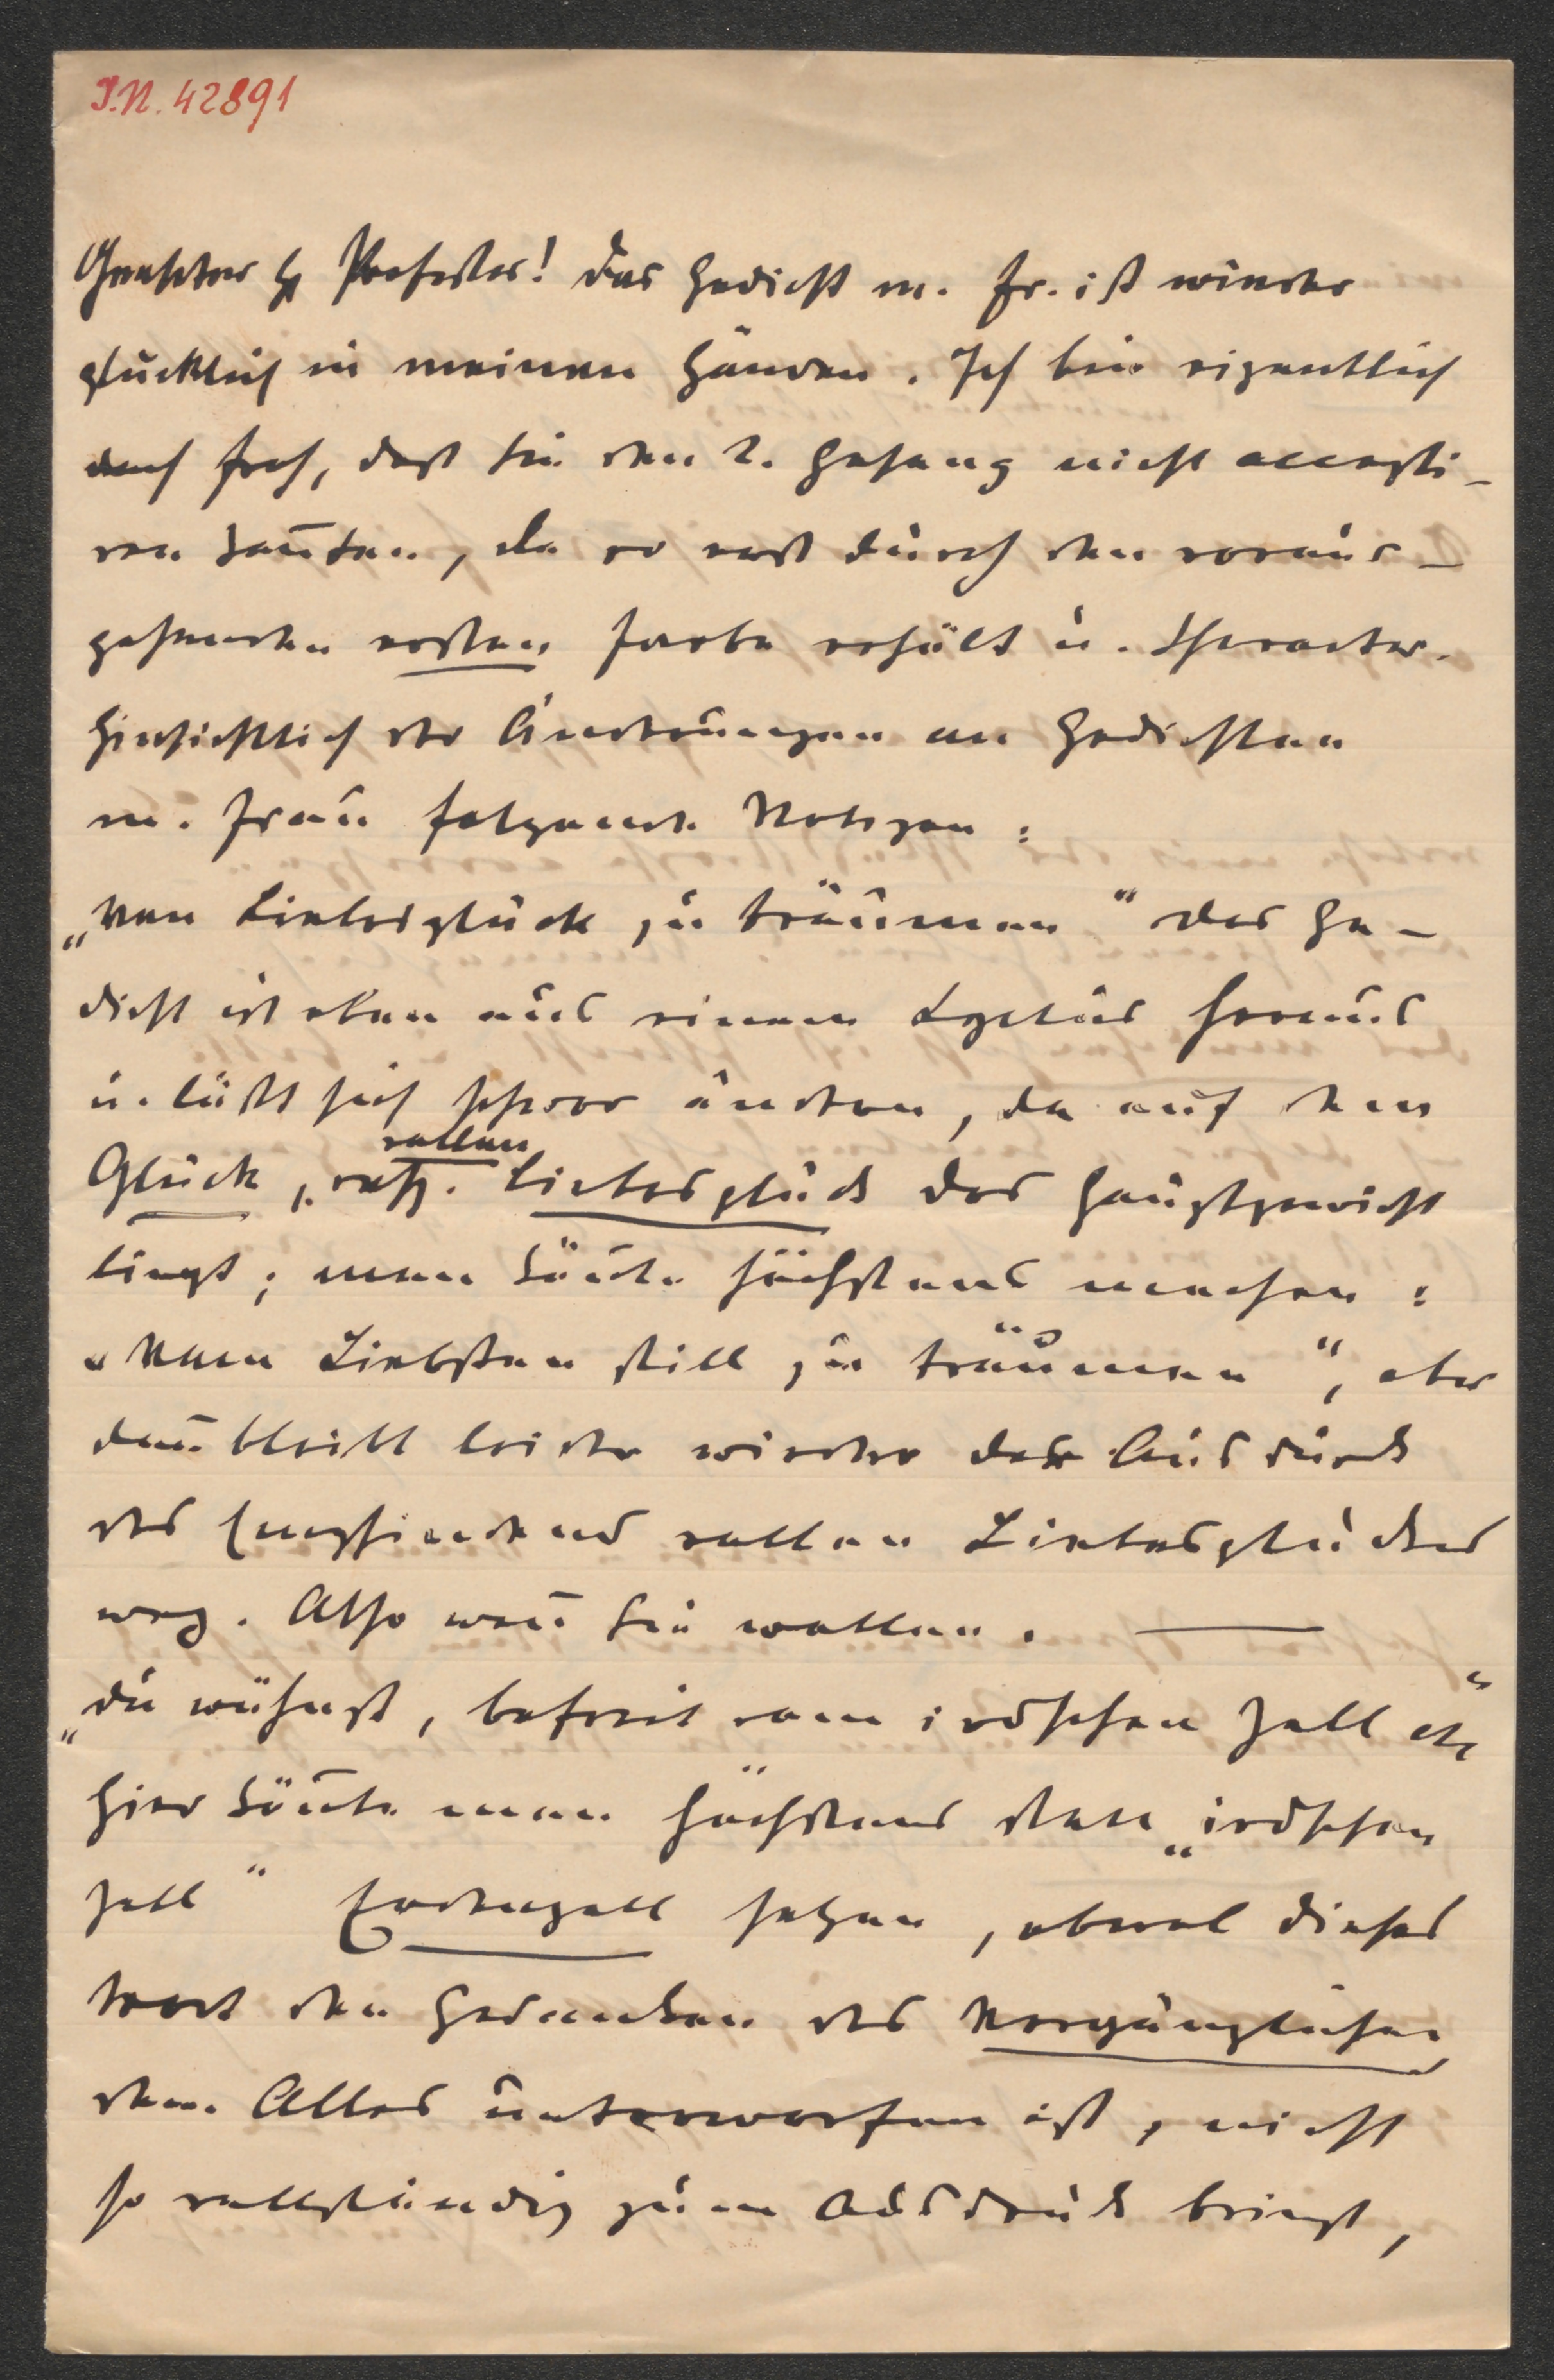 J.N. 42891
Geehrter H Professor! Das Gedicht m. Fr. ist wieder
glücklich in meinen Händen. Ich bin eigentlich
auch froh, daß Sie den 2. Gesang nicht accepti-
ren konnten, da er erst durch den voraus-
gehenden ersten Farbe erhält u. Character.
Hinsichtlich der Änderungen an Gedichten
m. Frau folgende Notizen:
„Von Liebesglück zu träumen" das Ge-
dicht ist eben aus einem Cyclus heraus
u. läßt sich schwer ändern, da auf dem
vollen
Glück, resp. Liebesglück das Hauptgewicht
liegt; man könnte höchstens machen:
„Vom Liebsten still zu träumen", aber
dann bleibt leider wieder der Ausdruck
des Empfindens vollen Liebesglückes
weg. Also wenn Sie wollen. —
„Du wähnst, befreit vom irdschen Zoll etc"
Hier könnte man höchstens statt „irdschen
Zoll" Erdenzoll setzen, obwol dieses
Wort den Gedanken des Vergänglichen
dem Alles unterworfen ist, nicht
so vollständig zum Ausdruck bringt,